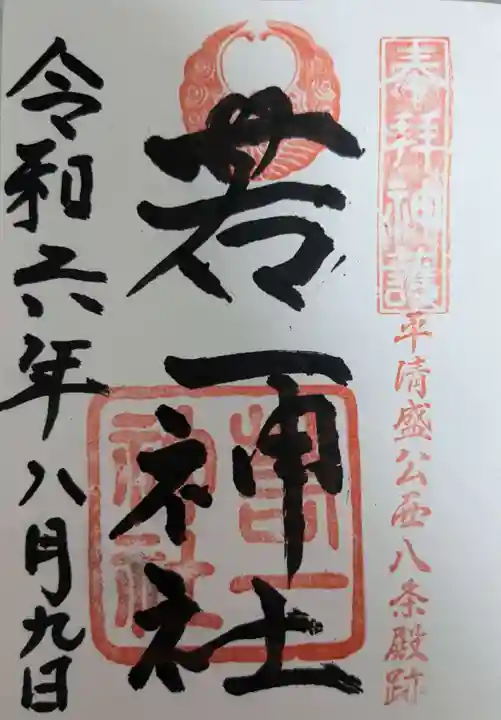 奉拝神護
平清盛公西八条殿跡
若一神社
若一神社
令和六年八月九日